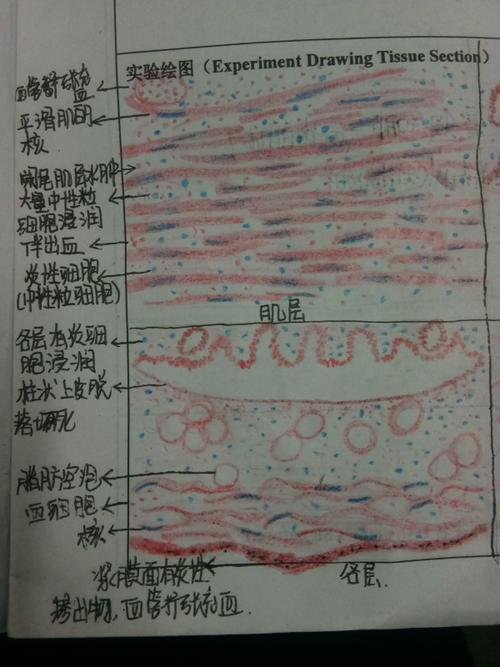 实验绘图（Experiment Drawing Tissue Section）
血管扩张充
血
平滑肌的
核
阑尾肌层水肿
大量中性粒
细胞浸润
伴出血
炎性细胞
(中性粒细胞)
肌层
各层有炎细
胞浸润
柱状上皮脱
落
脂肪空泡
血细胞
核
浆膜面有炎性
各层
渗出物,血管扩张充血.